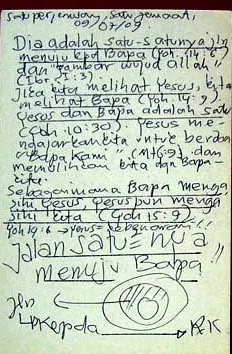 satu per, enwang, satu jemaat,
09/07/09.
Dia adalah satu-satunya jln
menuju kpd Bapa (Yoh. 14:6)
dan "gambar wujud Allah"
(Ibr. 1:3).
Jika kita melihat Yesus, kita
melihat Bapa (Yoh. 14:9)
Yesus dan Bapa adalah satu
(Yoh 10:30). Yesus me-
ngajarkan kita untuk berdoa
"Bapa Kami" (Mt 6:9) dan
memulihkan kita dan Bapa-
kita.
Sebagaimana Bapa menga
sihi Yesus, Yesus pun menga
sihi kita (Yoh 15:9)
Yoh 14:6 → Yesus = kebenaran!!
Jalan satu²nya
menuju Bapa!!
Jln
kepada